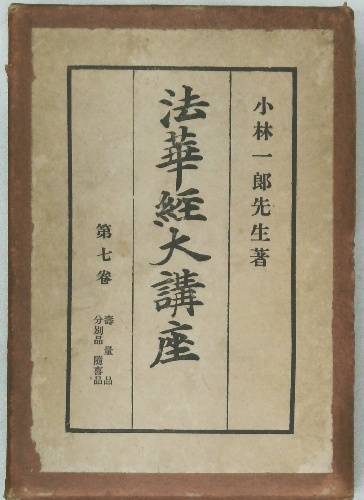 小林一郎先生著
法華經大講座
第七卷
壽量品
分別品 隨喜品